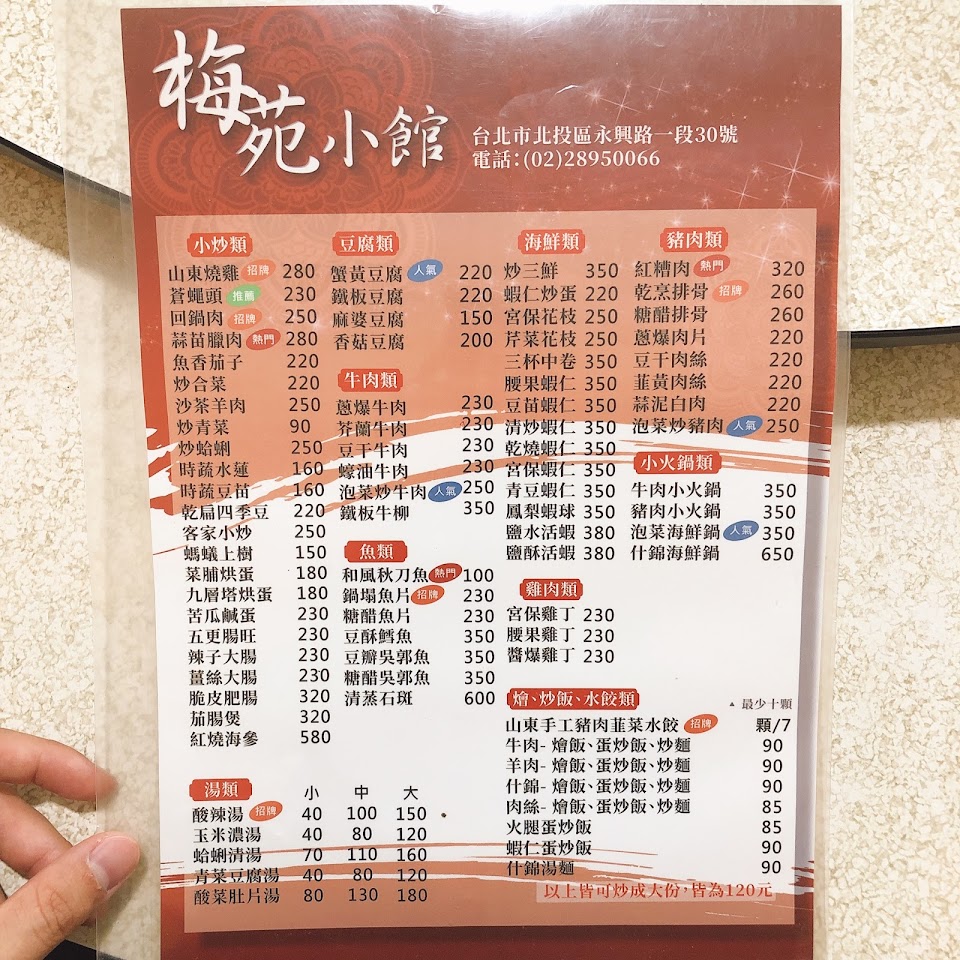 梅苑小館
台北市北投區永興路一段30號
電話:(02)28950066
小炒類
山東燒雞 招牌 280
蒼蠅頭 推薦 230
回鍋肉 招牌 250
蒜苗臘肉 熱門 280
魚香茄子 220
炒合菜 220
沙茶羊肉 250
炒青菜 90
炒蛤蜊 250
時蔬水蓮 160
時蔬豆苗 160
乾扁四季豆 220
客家小炒 250
螞蟻上樹 150
菜脯烘蛋 180
九層塔烘蛋 180
苦瓜鹹蛋 230
五更腸旺 230
辣子大腸 230
薑絲大腸 230
脆皮肥腸 320
茄腸煲 320
紅燒海參 580
湯類 小 中 大
酸辣湯 招牌 40 100 150
玉米濃湯 40 80 120
蛤蜊清湯 70 110 160
青菜豆腐湯 40 80 120
酸菜肚片湯 80 130 180
豆腐類
蟹黃豆腐 人氣 220
鐵板豆腐 220
麻婆豆腐 150
香菇豆腐 200
牛肉類
蔥爆牛肉 230
芥蘭牛肉 230
豆干牛肉 230
蠔油牛肉 230
泡菜炒牛肉 人氣 250
鐵板牛柳 350
魚類
和風秋刀魚 熱門 100
鍋塌魚片 招牌 230
糖醋魚片 230
豆酥鱈魚 350
豆瓣吳郭魚 350
糖醋吳郭魚 350
清蒸石斑 600
海鮮類
炒三鮮 350
蝦仁炒蛋 220
宮保花枝 250
芹菜花枝 250
三杯中卷 350
腰果蝦仁 350
豆苗蝦仁 350
清炒蝦仁 350
乾燒蝦仁 350
宮保蝦仁 350
青豆蝦仁 350
鳳梨蝦球 350
鹽水活蝦 380
鹽酥活蝦 380
雞肉類
宮保雞丁 230
腰果雞丁 230
醬爆雞丁 230
豬肉類
紅糟肉 熱門 320
乾烹排骨 招牌 260
糖醋排骨 260
蔥爆肉片 220
豆干肉絲 220
韮黃肉絲 220
蒜泥白肉 220
泡菜炒豬肉 人氣 250
小火鍋類
牛肉小火鍋 350
豬肉小火鍋 350
泡菜海鮮鍋 人氣 350
什錦海鮮鍋 650
燴、炒飯、水餃類 ▲ 最少十顆
山東手工豬肉韮菜水餃 招牌 顆/7
牛肉- 燴飯、蛋炒飯、炒麵 90
羊肉- 燴飯、蛋炒飯、炒麵 90
什錦- 燴飯、蛋炒飯、炒麵 90
肉絲- 燴飯、蛋炒飯、炒麵 85
火腿蛋炒飯 85
蝦仁蛋炒飯 90
什錦湯麵 90
以上皆可炒成大份,皆為120元